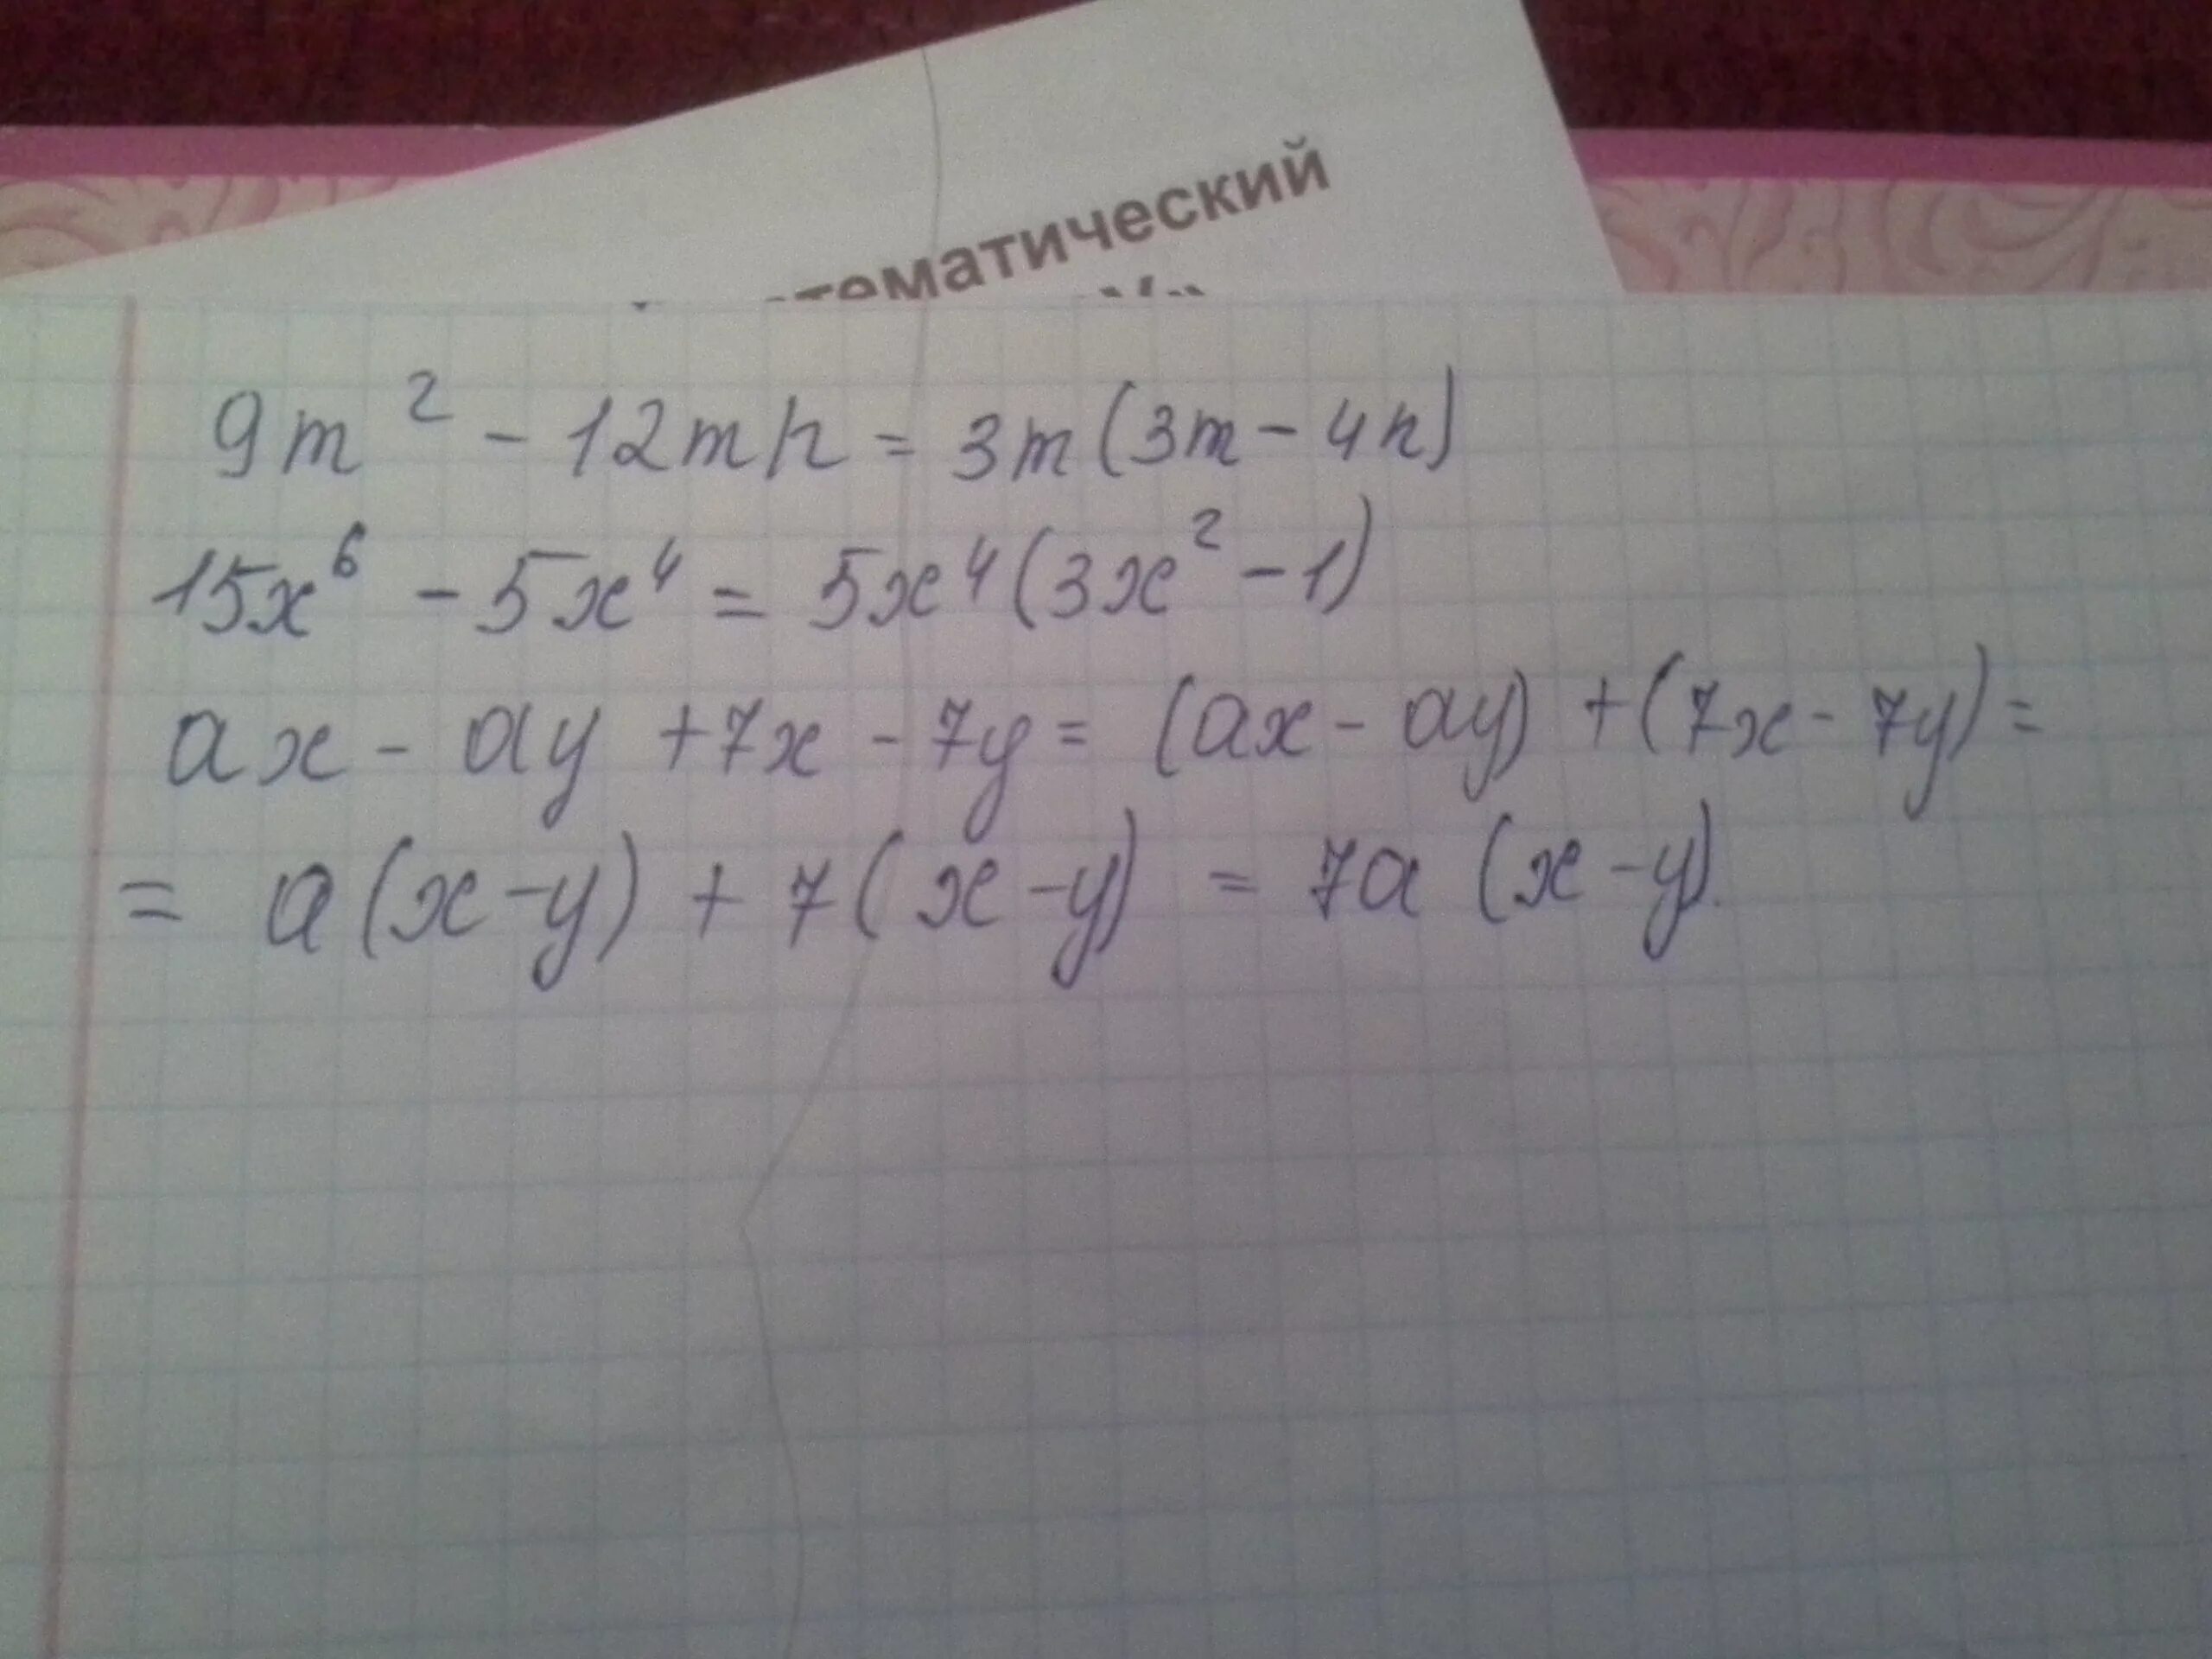 математический
9m² - 12mn = 3m(3m - 4n)
15x⁶ - 5x⁴ = 5x⁴(3x² - 1)
ax - ay + 7x - 7y = (ax - ay) + (7x - 7y) =
= a(x - y) + 7(x - y) = 7a (x - y).